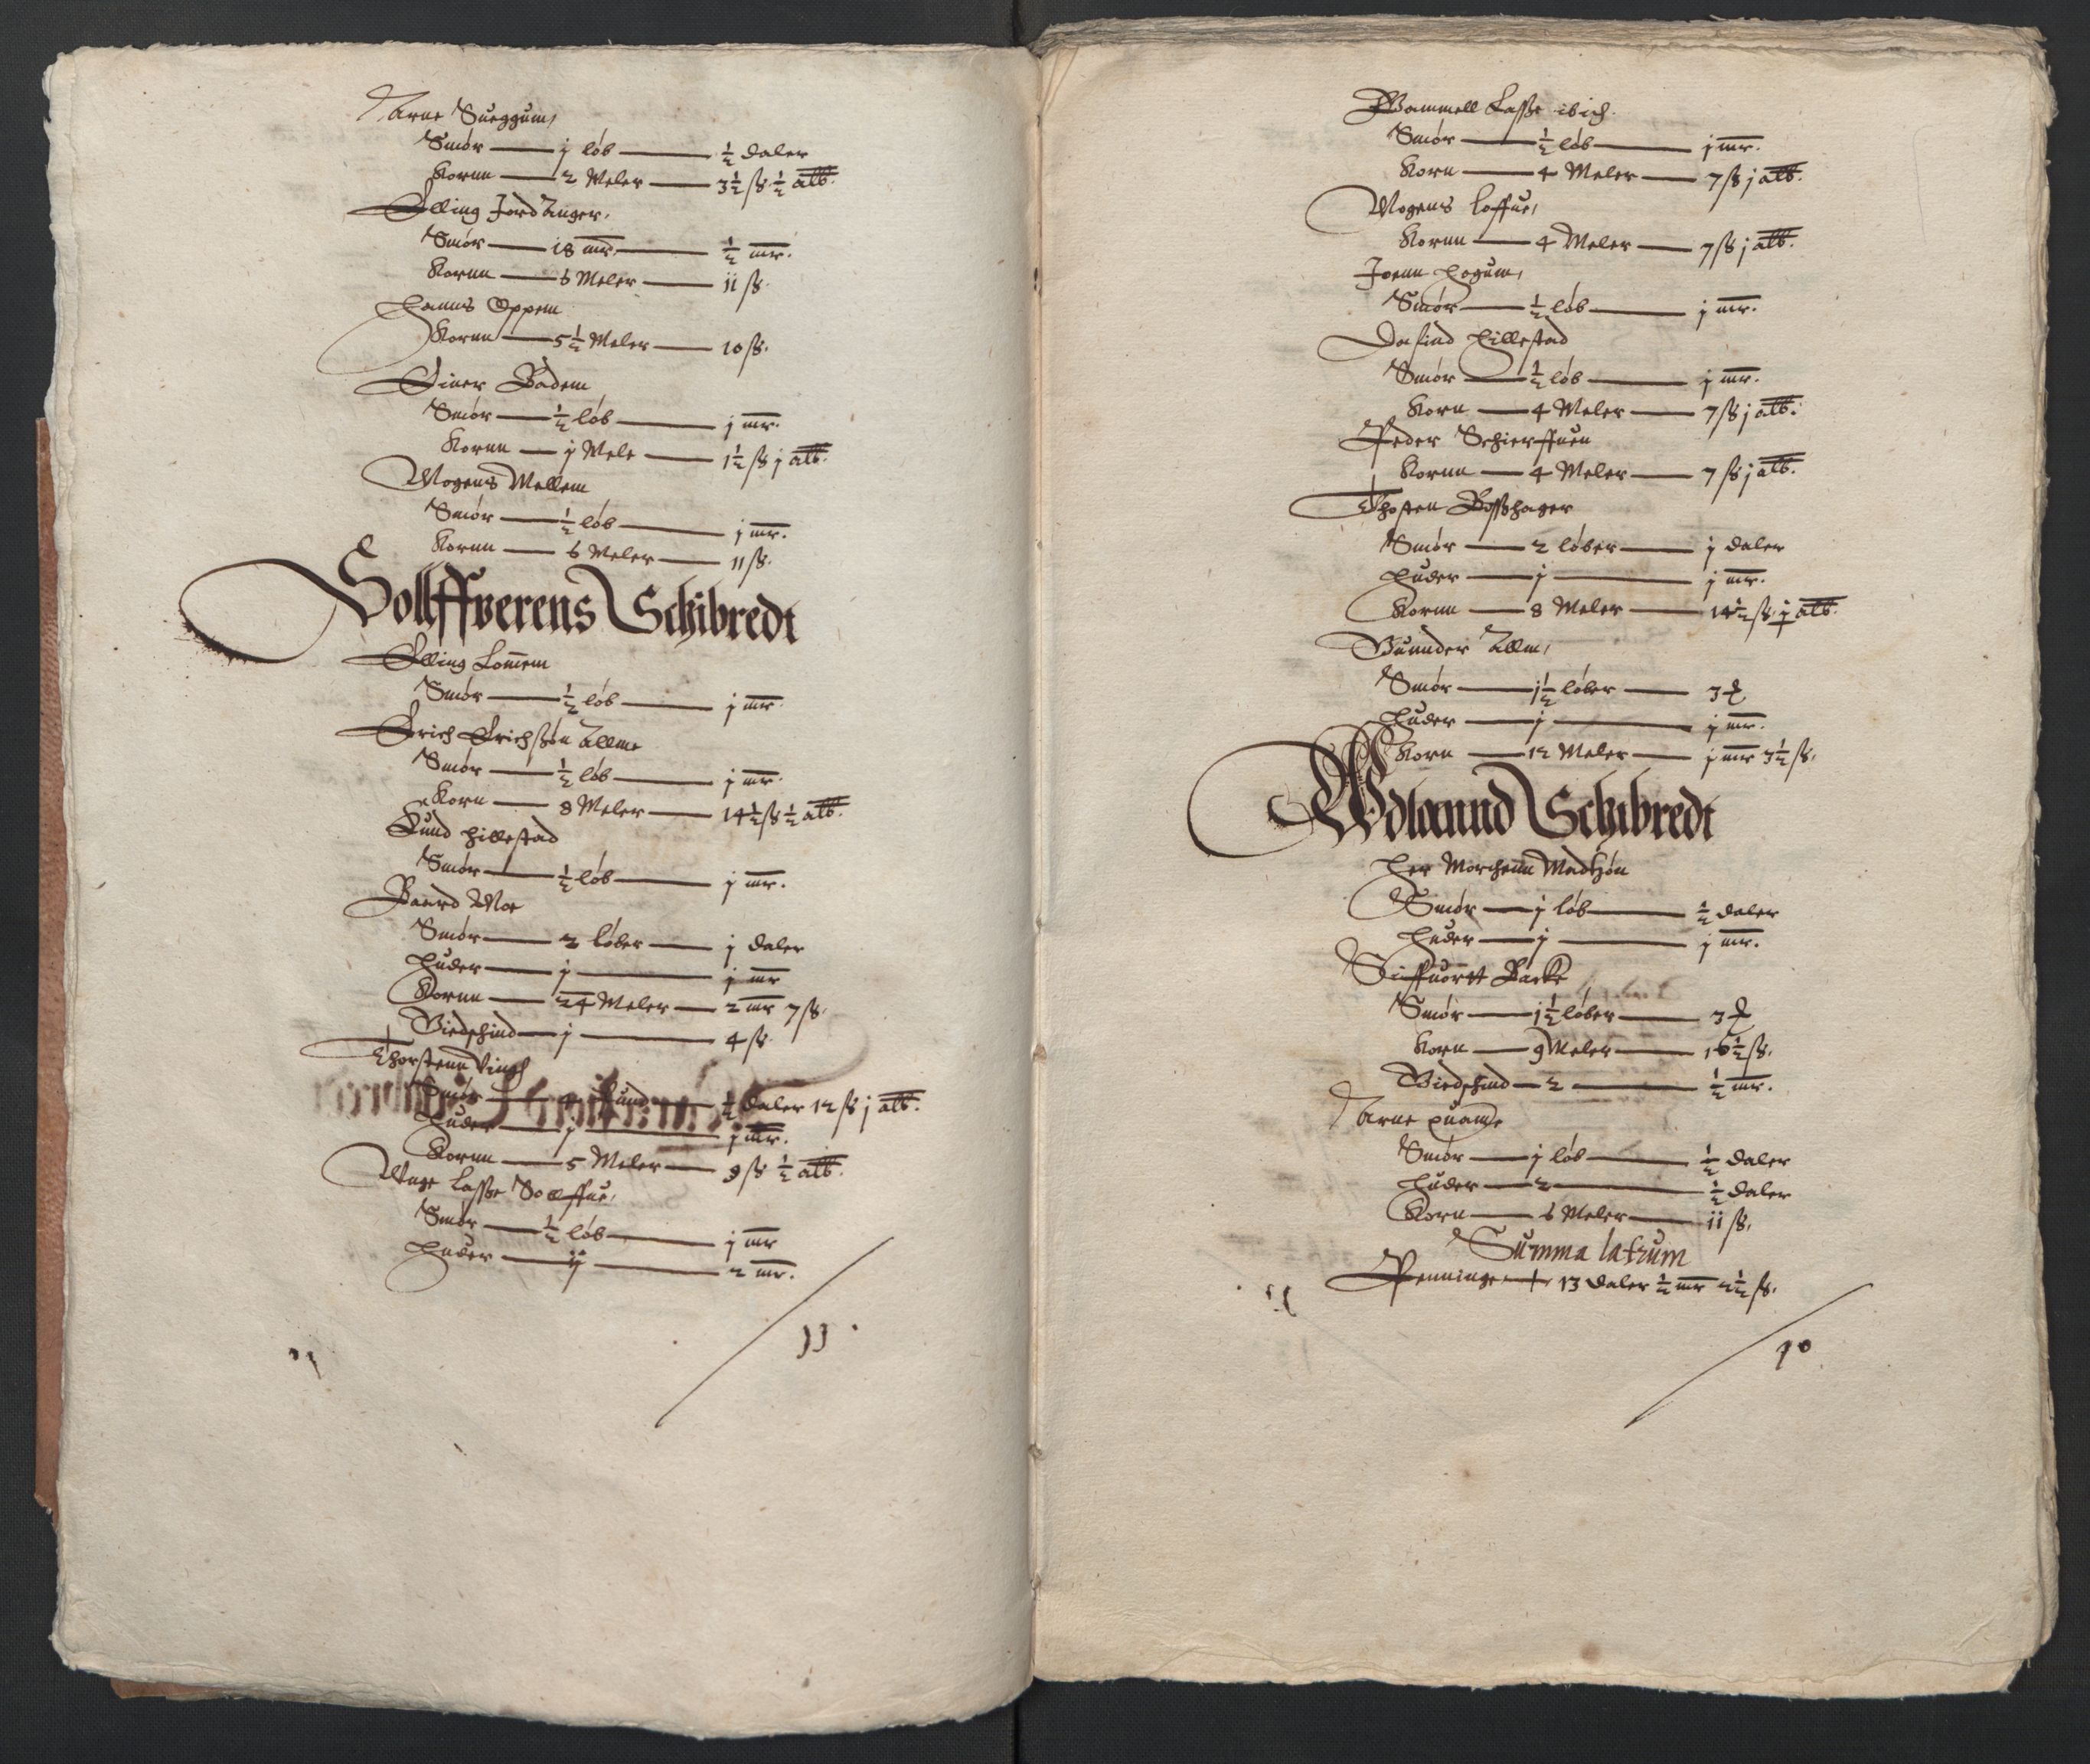 Arne Sueggum,
Smör — j löb — ½ daler
Kornn — 2 Meler — 3½ ß ½ alb.
Elling Jord Anger,
Smör — 18 mr — ½ mr.
Kornn — 6 Meler — ij ß.
Hanns Oppem
Kornn — 5½ Meler — 10 ß.
Einer Badem
Smör — ½ löb — j mr.
Kornn — j Mele — 1½ ß j alb.
Mogens Mellem
Smör — ½ löb — j mr.
Kornn — 6 Meler — 11 ß.
Sollffverens Schibredt
Elling Lomem
Smör — ½ löb — j mr.
Erich Erichßön Allme
Smör — ½ löb — j mr.
Korn — 8 Meler — 14½ ß ½ alb.
Knud Hillestad
Smör — ½ löb — j mr.
Baard Moe
Smör — 2 löber — j daler
Huder — j — j mr
Kornn — 24 Meler — 2 mr 7 ß.
Biedshind — j — 4 ß
Thorstenn Vingh
Smör — pund — ½ daler 12 ß j alb.
Huder — j — j mr.
Kornn — 5 Meler — 9 ß ½ alb.
Unge Lasse Solffue,
Smör — ½ löb — j mr
Huder — ij — 2 mr.
11
Gammell Lasse ibid.
Smör — ½ löb — j mr.
Korn — 4 Meler — 7 ß j alb.
Mogens Loffue,
Kornn — 4 Meler — 7 ß j alb.
Joenn Hogum,
Smör — ½ löb — j mr.
Dafind Hillestad
Smör — ½ löb — j mr.
Korn — 4 Meler — 7 ß j alb.
Peder Schierffuen
Kornn — 4 Meler — 7 ß j alb.
Thosten Boßhager
Smör — 2 löber — j daler
Huder — j — j mr.
Kornn — 8 Meler — 14½ ß j alb.
Gunnder Allm,
Smör — 1½ löber — 3
Huder — j — j mr.
Korn — 12 Meler — j mr 3½ ß.
Wdlannd Schibredt
Her Morchenn Madtzön
Smör — j löb — ½ daler
Huder — j — j mr.
Siffuortt Backe
Smör — 1½ löber — 3
Korn — 9 Meler — 16½ ß.
Biedshind — 2 — ½ mr.
Arne Huame
Smör — j löb — ½ daler
Huder — 2 — ½ daler
Korn — 6 Meler — ij ß,
Summa latrum
Penninge — 13 daler ½ mr 2½ ß.
10